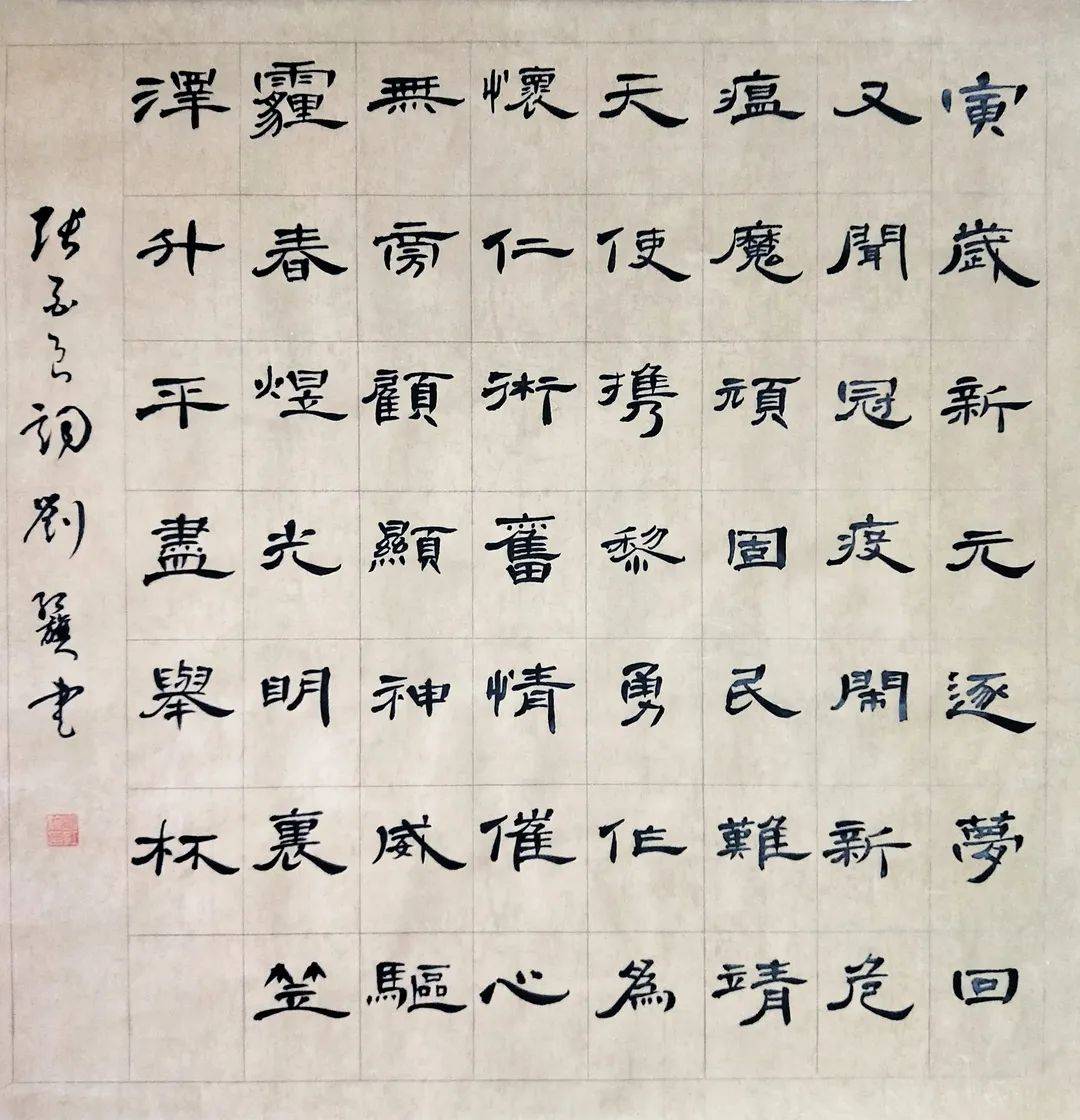 寅歲新元逐夢回
又聞冠疫鬧新危
瘟魔頑固民難靖
天使携黎勇作為
懷仁術奮情催心
無旁顧顯神威驅
霾春煜光明裏笠
澤升平盡舉杯
张良詞劉書